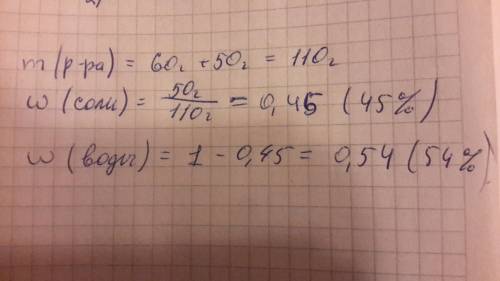 m (р-ра) = 60г + 50г = 110г
ω (соли) = 50г/110г = 0,45 (45%)
ω (воды) = 1 - 0,45 = 0,54 (54%)